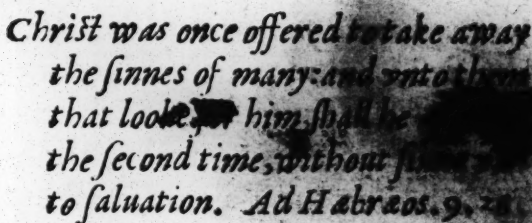 Chriſt was once offered to take away
the ſinnes of many: and vnto them
that looke for him, ſhall he
the ſecond time, without ſinne
to ſaluation. Ad Hæbræos. 9. 28